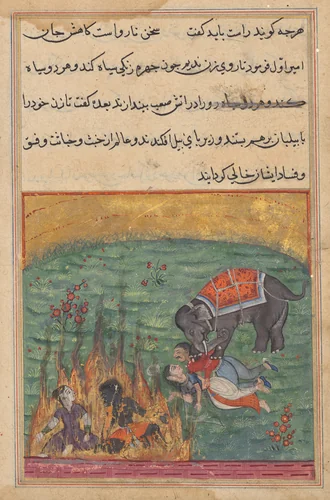 هرچه کویند راست باید کفت سخن نارواست کاهش جان
امیر اول فرمود تا روی زن بدبیر چون چهره زنکی سیاه کند و هر دو سیاه
کند و هر دل سیاه را در آتش صعب بیندازند بعده کفت تا زن خود را
با پیلبان بر هم بستند و زیر پای پیل افکندند و عالم از خبث و خباثت و فسق
و فساد ایشان خالی کردانید